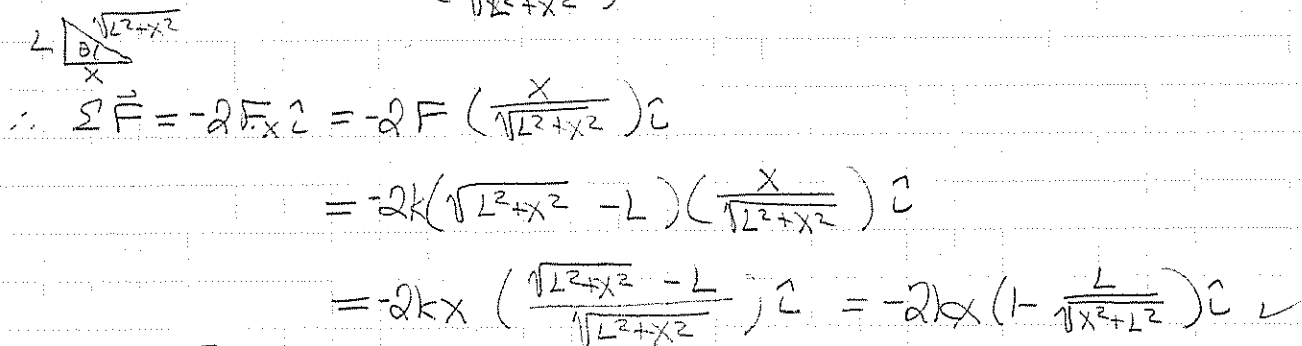 √L²+x² )
L √L²+x²
θ
x
∴ ΣF⃗ = -2Fₓ î = -2F ( x / √L²+x² ) î
= -2k(√L²+x² - L)( x / √L²+x² ) î
= -2kx ( √L²+x² - L / √L²+x² ) î = -2kx (1 - L / √x²+L² ) î ✓